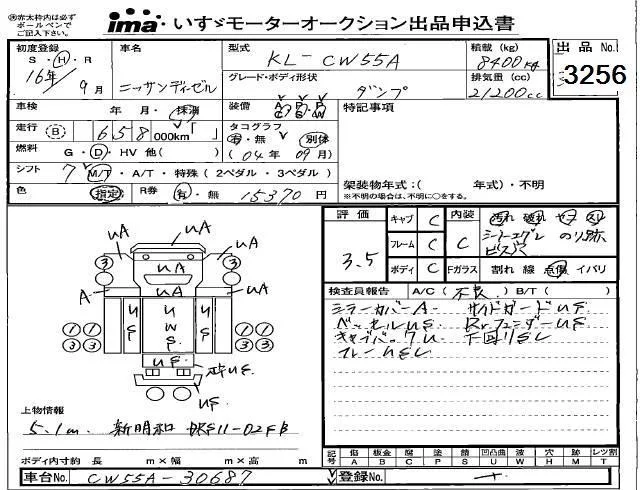 ※赤太枠内は必ず
ボールペンで
ご記入下さい。
ima・いすゞモーターオークション出品申込書
初度登録
S・H・R
16年 9月
車名
ニッサンディーゼル
型式
KL-CW55A
グレード・ボディ形状
ダンプ
積載 (kg)
8400kg
排気量 (cc)
21200cc
出品 No.
3256
車検 年 月・抹消
装備 A/C P/S P/W
特記事項
走行 B 658 000km
タコグラフ
有・無 別体
(04年 09月)
燃料 G・D・HV 他( )
シフト 7 M/T・A/T・特殊 (2ペダル・3ペダル)
色 指定 R券 有・無 15370円
架装物年式:( 年式)・不明
※不明の場合は、不明に○をする。
評価 3.5
キャブ C
フレーム C
ボディ C
内装 C
汚れ 破れ ヤケ スリ
シートエグレ のり跡
ビス穴
Fガラス 割れ 線 点傷 イバリ
検査員報告 A/C( 不良 ) B/T( )
ミラーカバーA サイドガードUS
ベッセルUS RrフェンダーUS
キャブバックU 下回りSC
フレームSC
uA uA
uA
A uA A
③ ③
US UWS US
①① ①①
③③ ③③
US 枠US
US
上物情報
5.1m 新明和
ボディ内寸約 長 m×幅 m×高 m
記号 傷 板金 腐 塗 錆 凹凸曲 波 穴 跡 レツ割
A B C P S U W H M T
車台No. CW55A-30687
登録No. ー